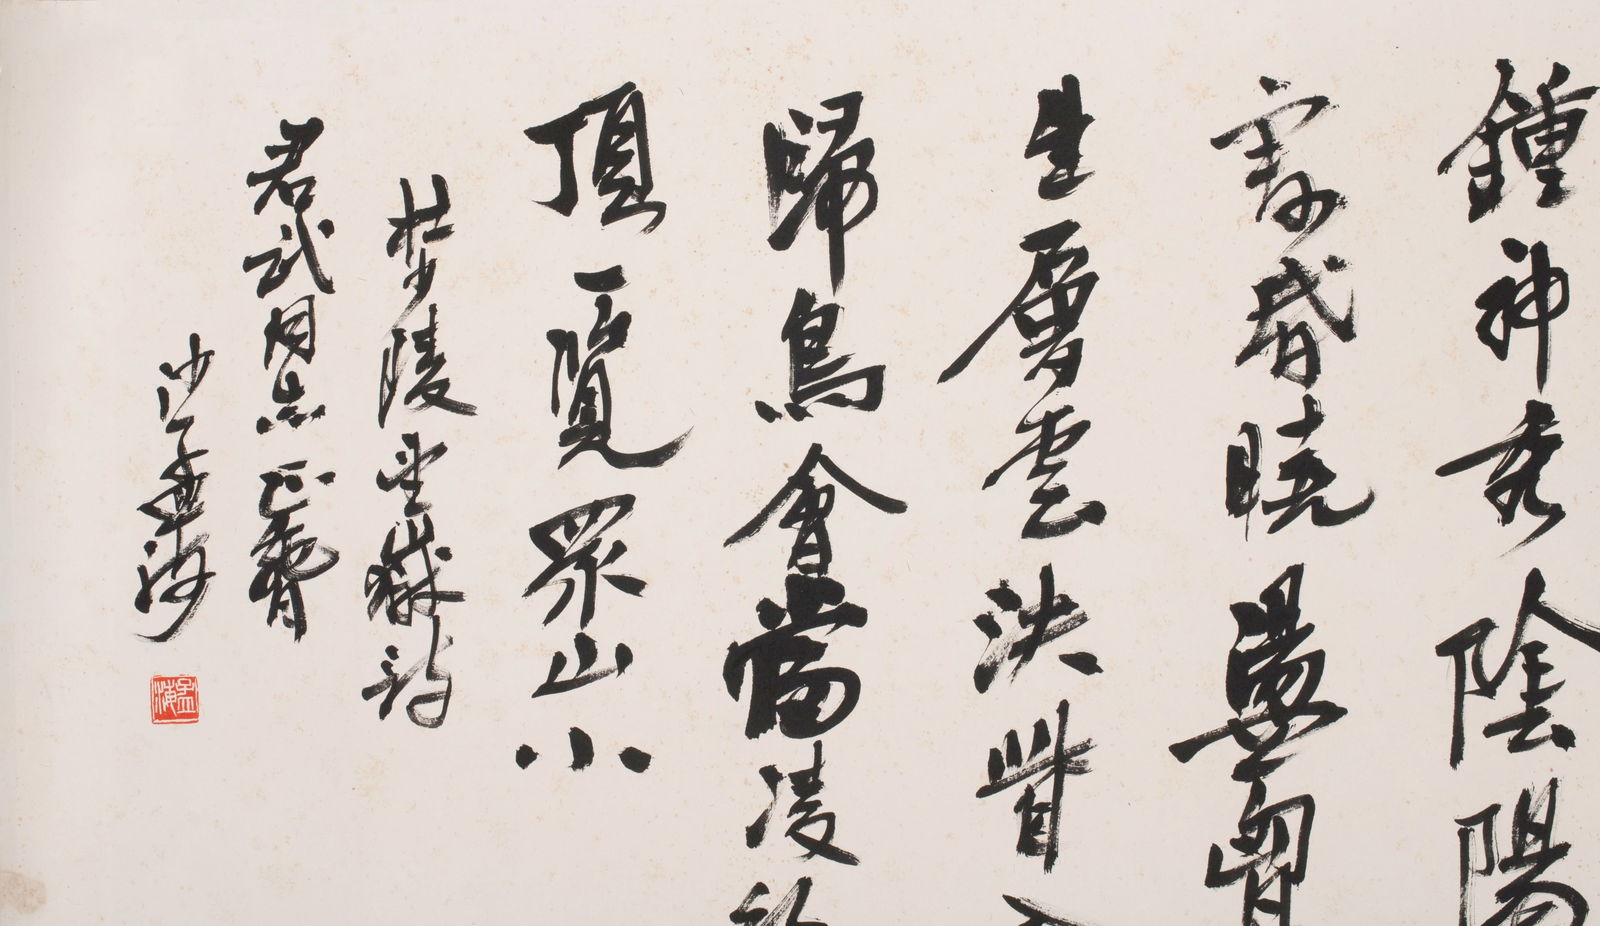 鍾神秀陰陽
割昬曉盪胷
生層雲決眥
歸鳥會當凌
頂一覽眾山小
杜少陵望嶽詩
君武同志正
沙孟海
孟海